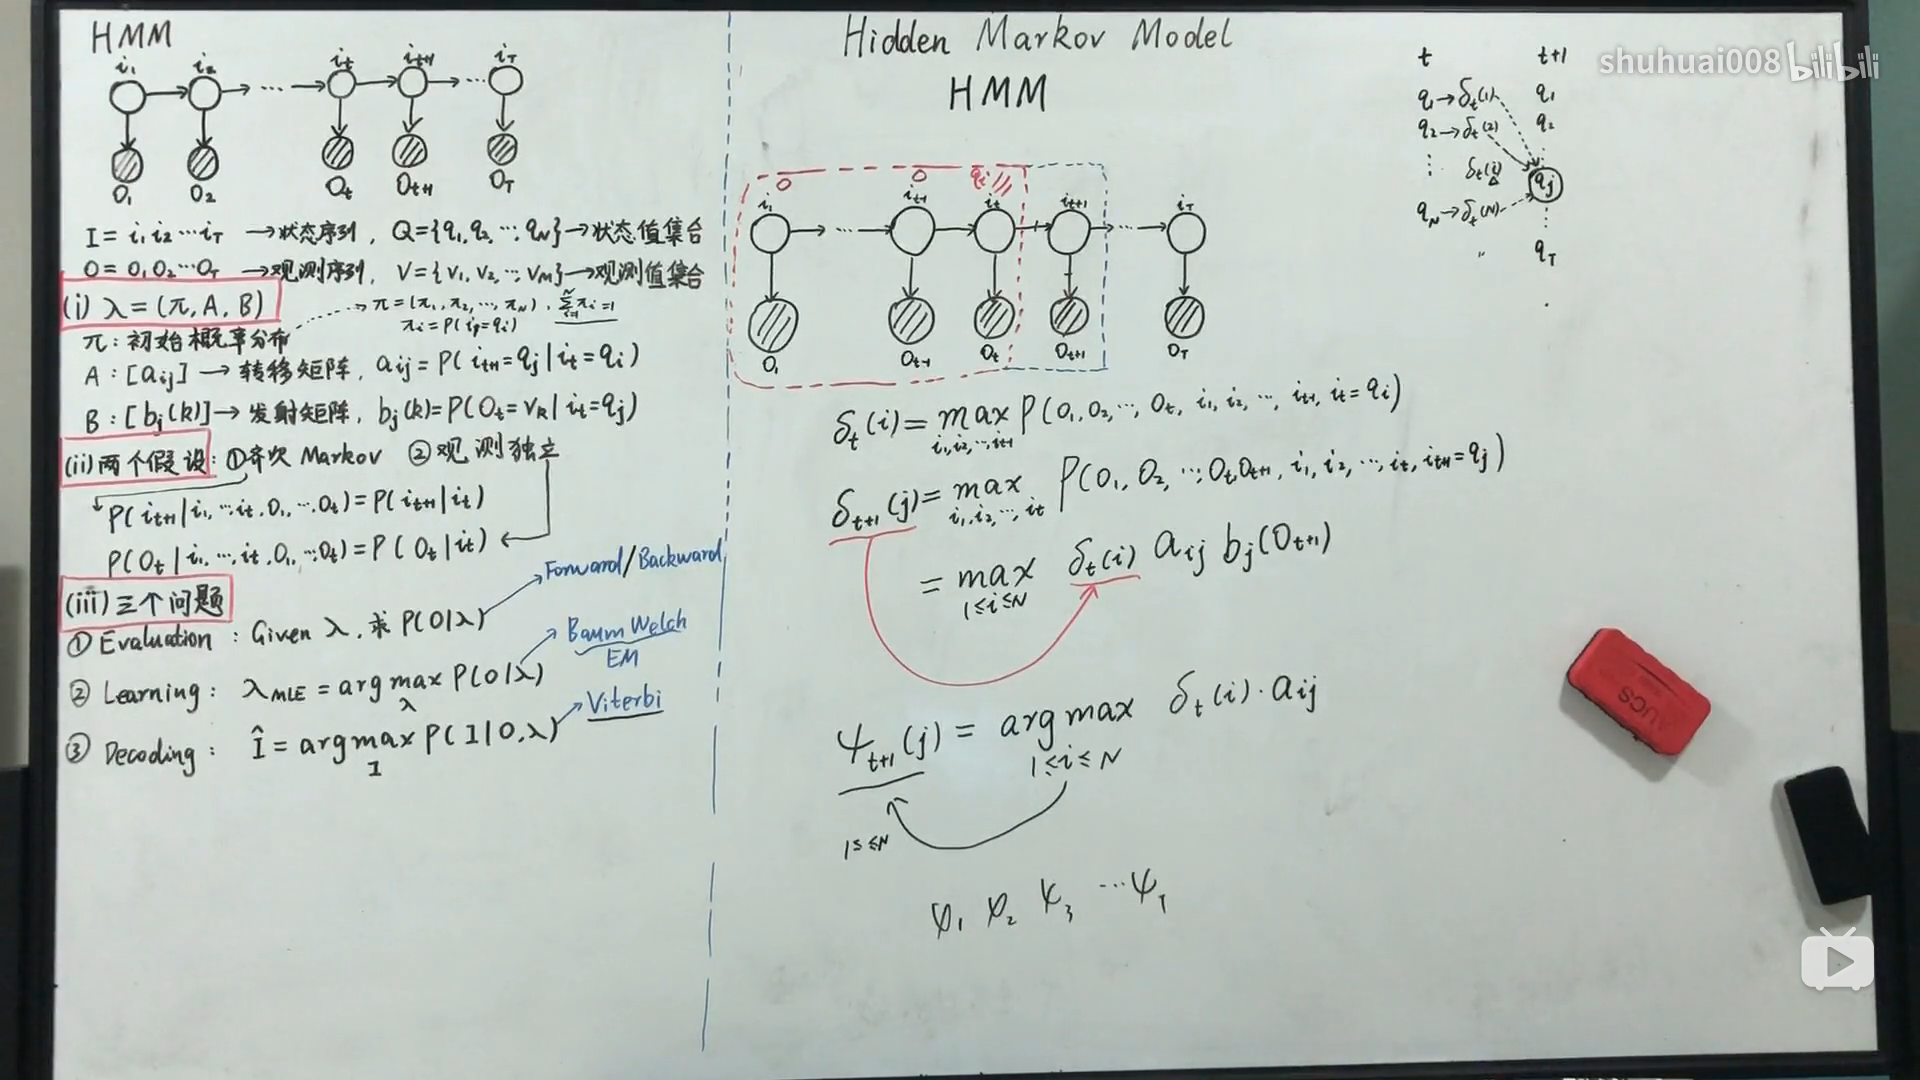 HMM
i₁ i₂ iₜ iₜ₊₁ i_T
...
O₁ O₂ Oₜ Oₜ₊₁ O_T
I = i₁ i₂ ⋯ i_T → 状态序列, Q={q₁, q₂, ⋯, q_N} → 状态值集合
O = O₁ O₂ ⋯ O_T → 观测序列, V={v₁, v₂, ⋯, v_M} → 观测值集合
(i) λ = (π, A, B)
π = (π₁, π₂, ⋯, π_N), ∑_{i=1}^{N} πᵢ = 1
πᵢ = P(i₁=qᵢ)
π: 初始概率分布
A : [aᵢⱼ] → 转移矩阵, aᵢⱼ = P(iₜ₊₁=qⱼ | iₜ=qᵢ)
B : [bⱼ(k)] → 发射矩阵, bⱼ(k) = P(Oₜ=v_k | iₜ=qⱼ)
(ii) 两个假设: ①齐次 Markov ②观测独立
P(iₜ₊₁ | i₁, ⋯, iₜ, O₁, ⋯, Oₜ) = P(iₜ₊₁ | iₜ)
P(Oₜ | i₁, ⋯, iₜ, O₁, ⋯, Oₜ) = P(Oₜ | iₜ)
(iii) 三个问题
Forward/Backward
① Evaluation : Given λ, 求 P(O|λ)
Baum Welch
EM
② Learning : λ_MLE = arg max_λ P(O|λ)
Viterbi
③ Decoding : Î = arg max_I P(I|O,λ)
Hidden Markov Model
HMM
qᵢ
i₁ iₜ₋₁ iₜ iₜ₊₁ i_T
...
O₁ Oₜ₋₁ Oₜ Oₜ₊₁ O_T
δₜ(i) = max_{i₁,i₂,⋯,iₜ₋₁} P(O₁, O₂, ⋯, Oₜ, i₁, i₂, ⋯, iₜ₋₁, iₜ=qᵢ)
δₜ₊₁(j) = max_{i₁,i₂,⋯,iₜ} P(O₁, O₂, ⋯, Oₜ, Oₜ₊₁, i₁, i₂, ⋯, iₜ, iₜ₊₁=qⱼ)
= max_{1≤i≤N} δₜ(i) aᵢⱼ bⱼ(Oₜ₊₁)
ψₜ₊₁(j) = arg max_{1≤i≤N} δₜ(i)·aᵢⱼ
1≤ ≤N
ψ₁ ψ₂ ψ₃ ⋯ ψ_T
t t+1
q₁ → δₜ(1) q₁
q₂ → δₜ(2) q₂
⋮ δₜ(i) qⱼ
q_N → δₜ(N) ⋮
q_T
shuhuai008 bilibili
AUCS